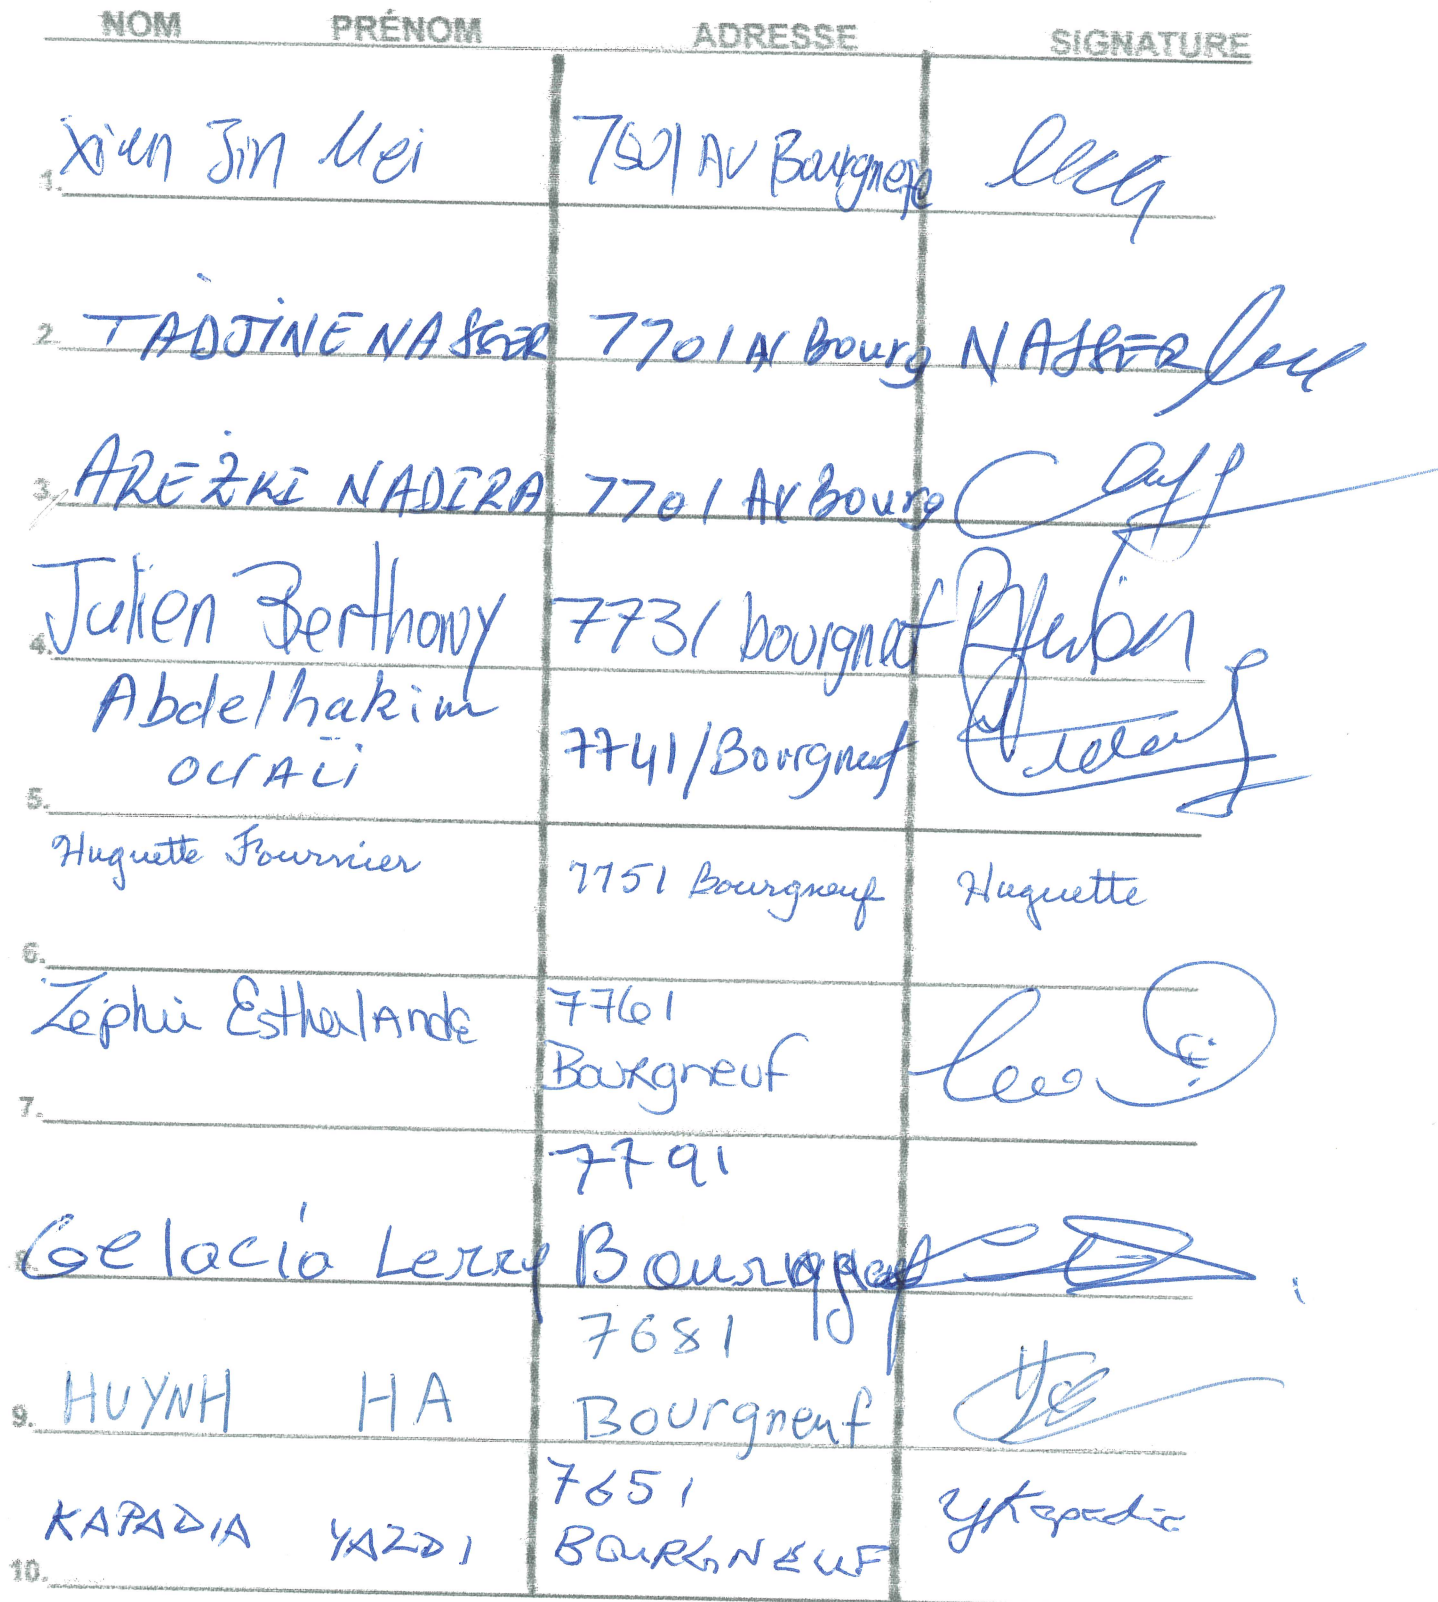 NOM PRÉNOM ADRESSE SIGNATURE
1. Xian Jin Mei AV
2. TADJINE NASSER 7701 AV Bourg NASSER
3. AREZKI NADIRA 7701 AV Bourg
4. Julien Berthony 7731 bourgneuf
Abdelhakim
5. OUALI 7741/Bourgneuf
Huguette Fournier 7751 Bourgneuf Huguette
6.
Estherlande 7761
Bourgneuf
7.
7791
8. Gelacio Lerry
7681
9. HUYNH HA Bourgneuf
7651
10. KAPADIA YAZDI BOURGNEUF YKapadia